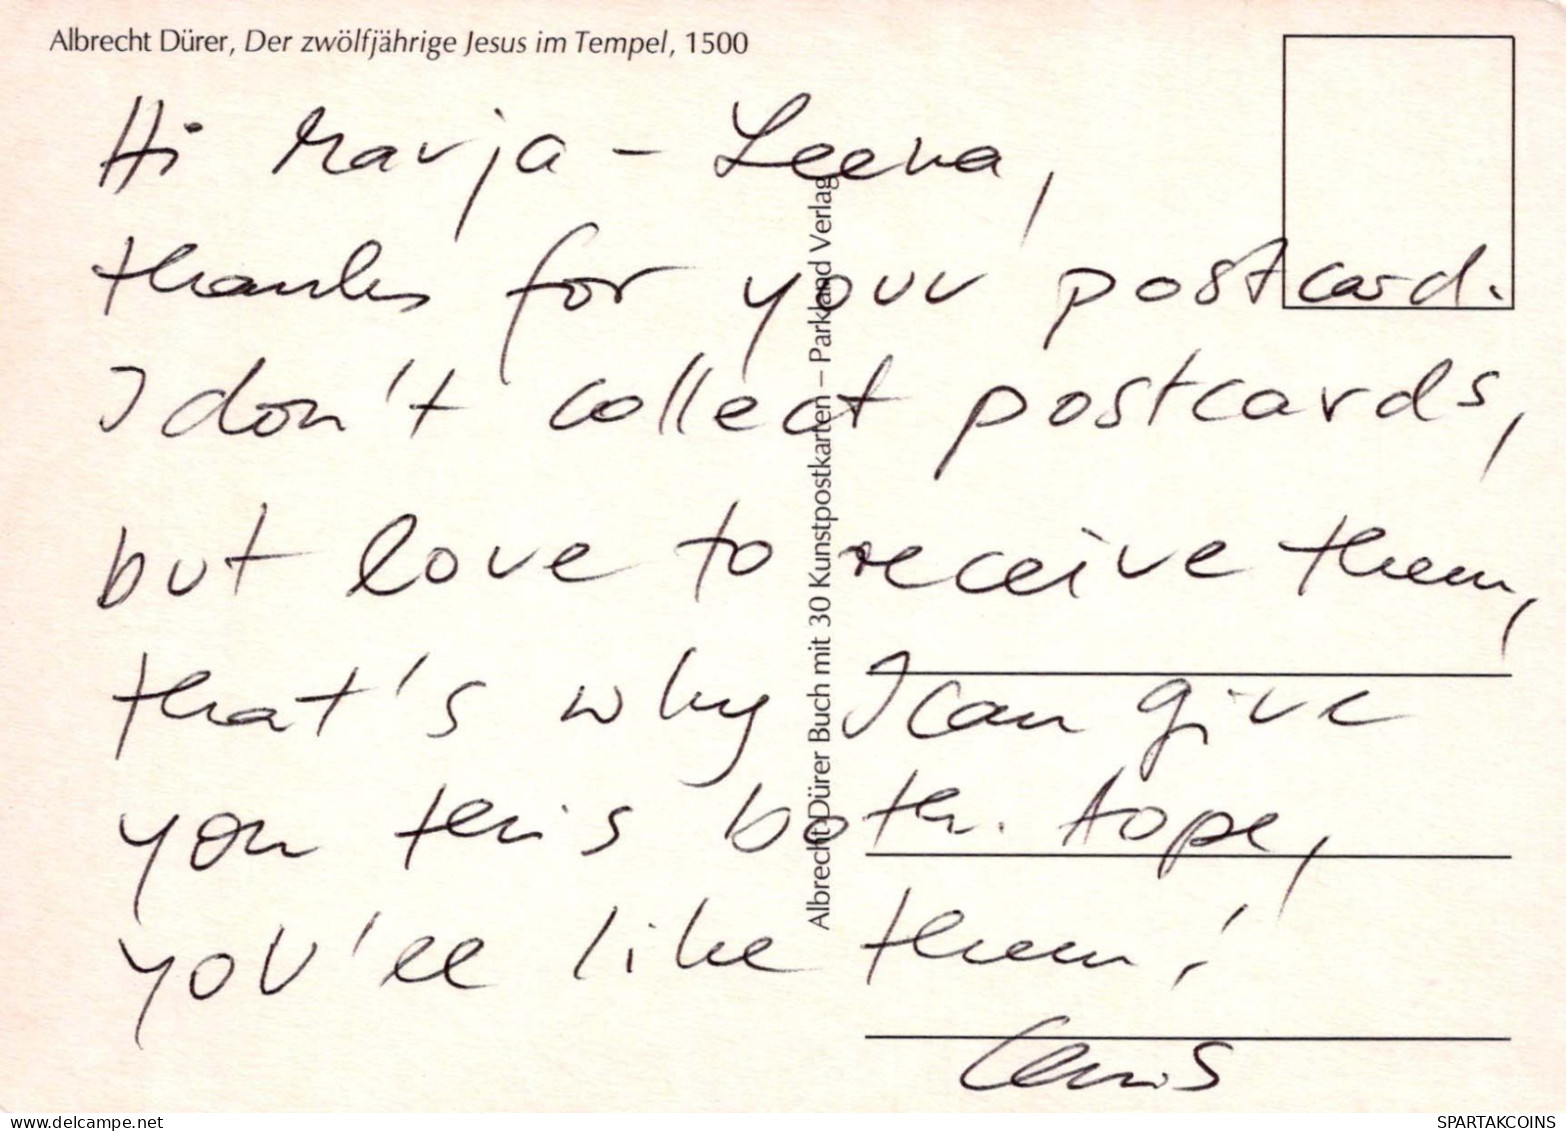 Albrecht Dürer, Der zwölfjährige Jesus im Tempel, 1500
Hi Marja - Leena,
thanks for your postcard.
I don't collect postcards,
but love to receive them,
that's why I can give
you this both. Hope,
you'll like them!
Chris
Albrecht Dürer Buch mit 30 Kunstpostkarten – Parkland Verlag
delcampe.net
SPARTAKCOINS